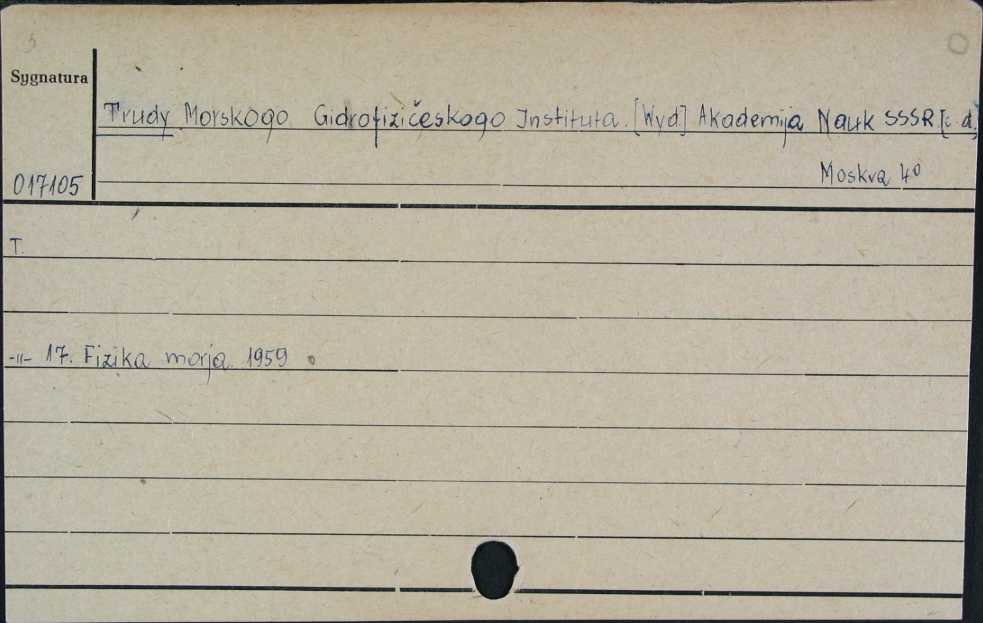 5
Sygnatura
Trudy Morskogo Gidrofizičeskogo Instituta. [Wyd] Akademija Nauk SSSR [c.d.]
017105
Moskva 4°
T.
-"- 17. Fizika morja. 1959